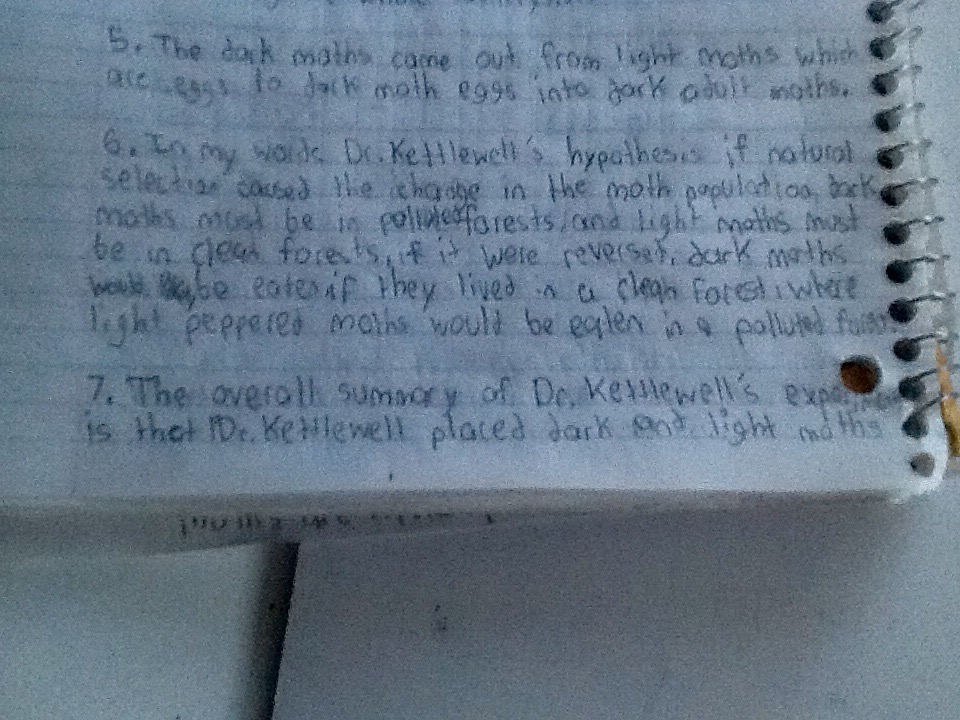 5. The dark moths came out from light moths which
are eggs to dark moth eggs into dark adult moths.
6. In my words Dr. Kettlewell's hypothesis if natural
selection caused the change in the moth population, dark
moths must be in polluted forests, and light moths must
be in clean forests, if it were reversed, dark moths
would be eaten if they lived in a clean forest, where
light peppered moths would be eaten in a polluted
7. The overall summary of Dr. Kettlewell's
is that Dr. Kettlewell placed dark and light moths